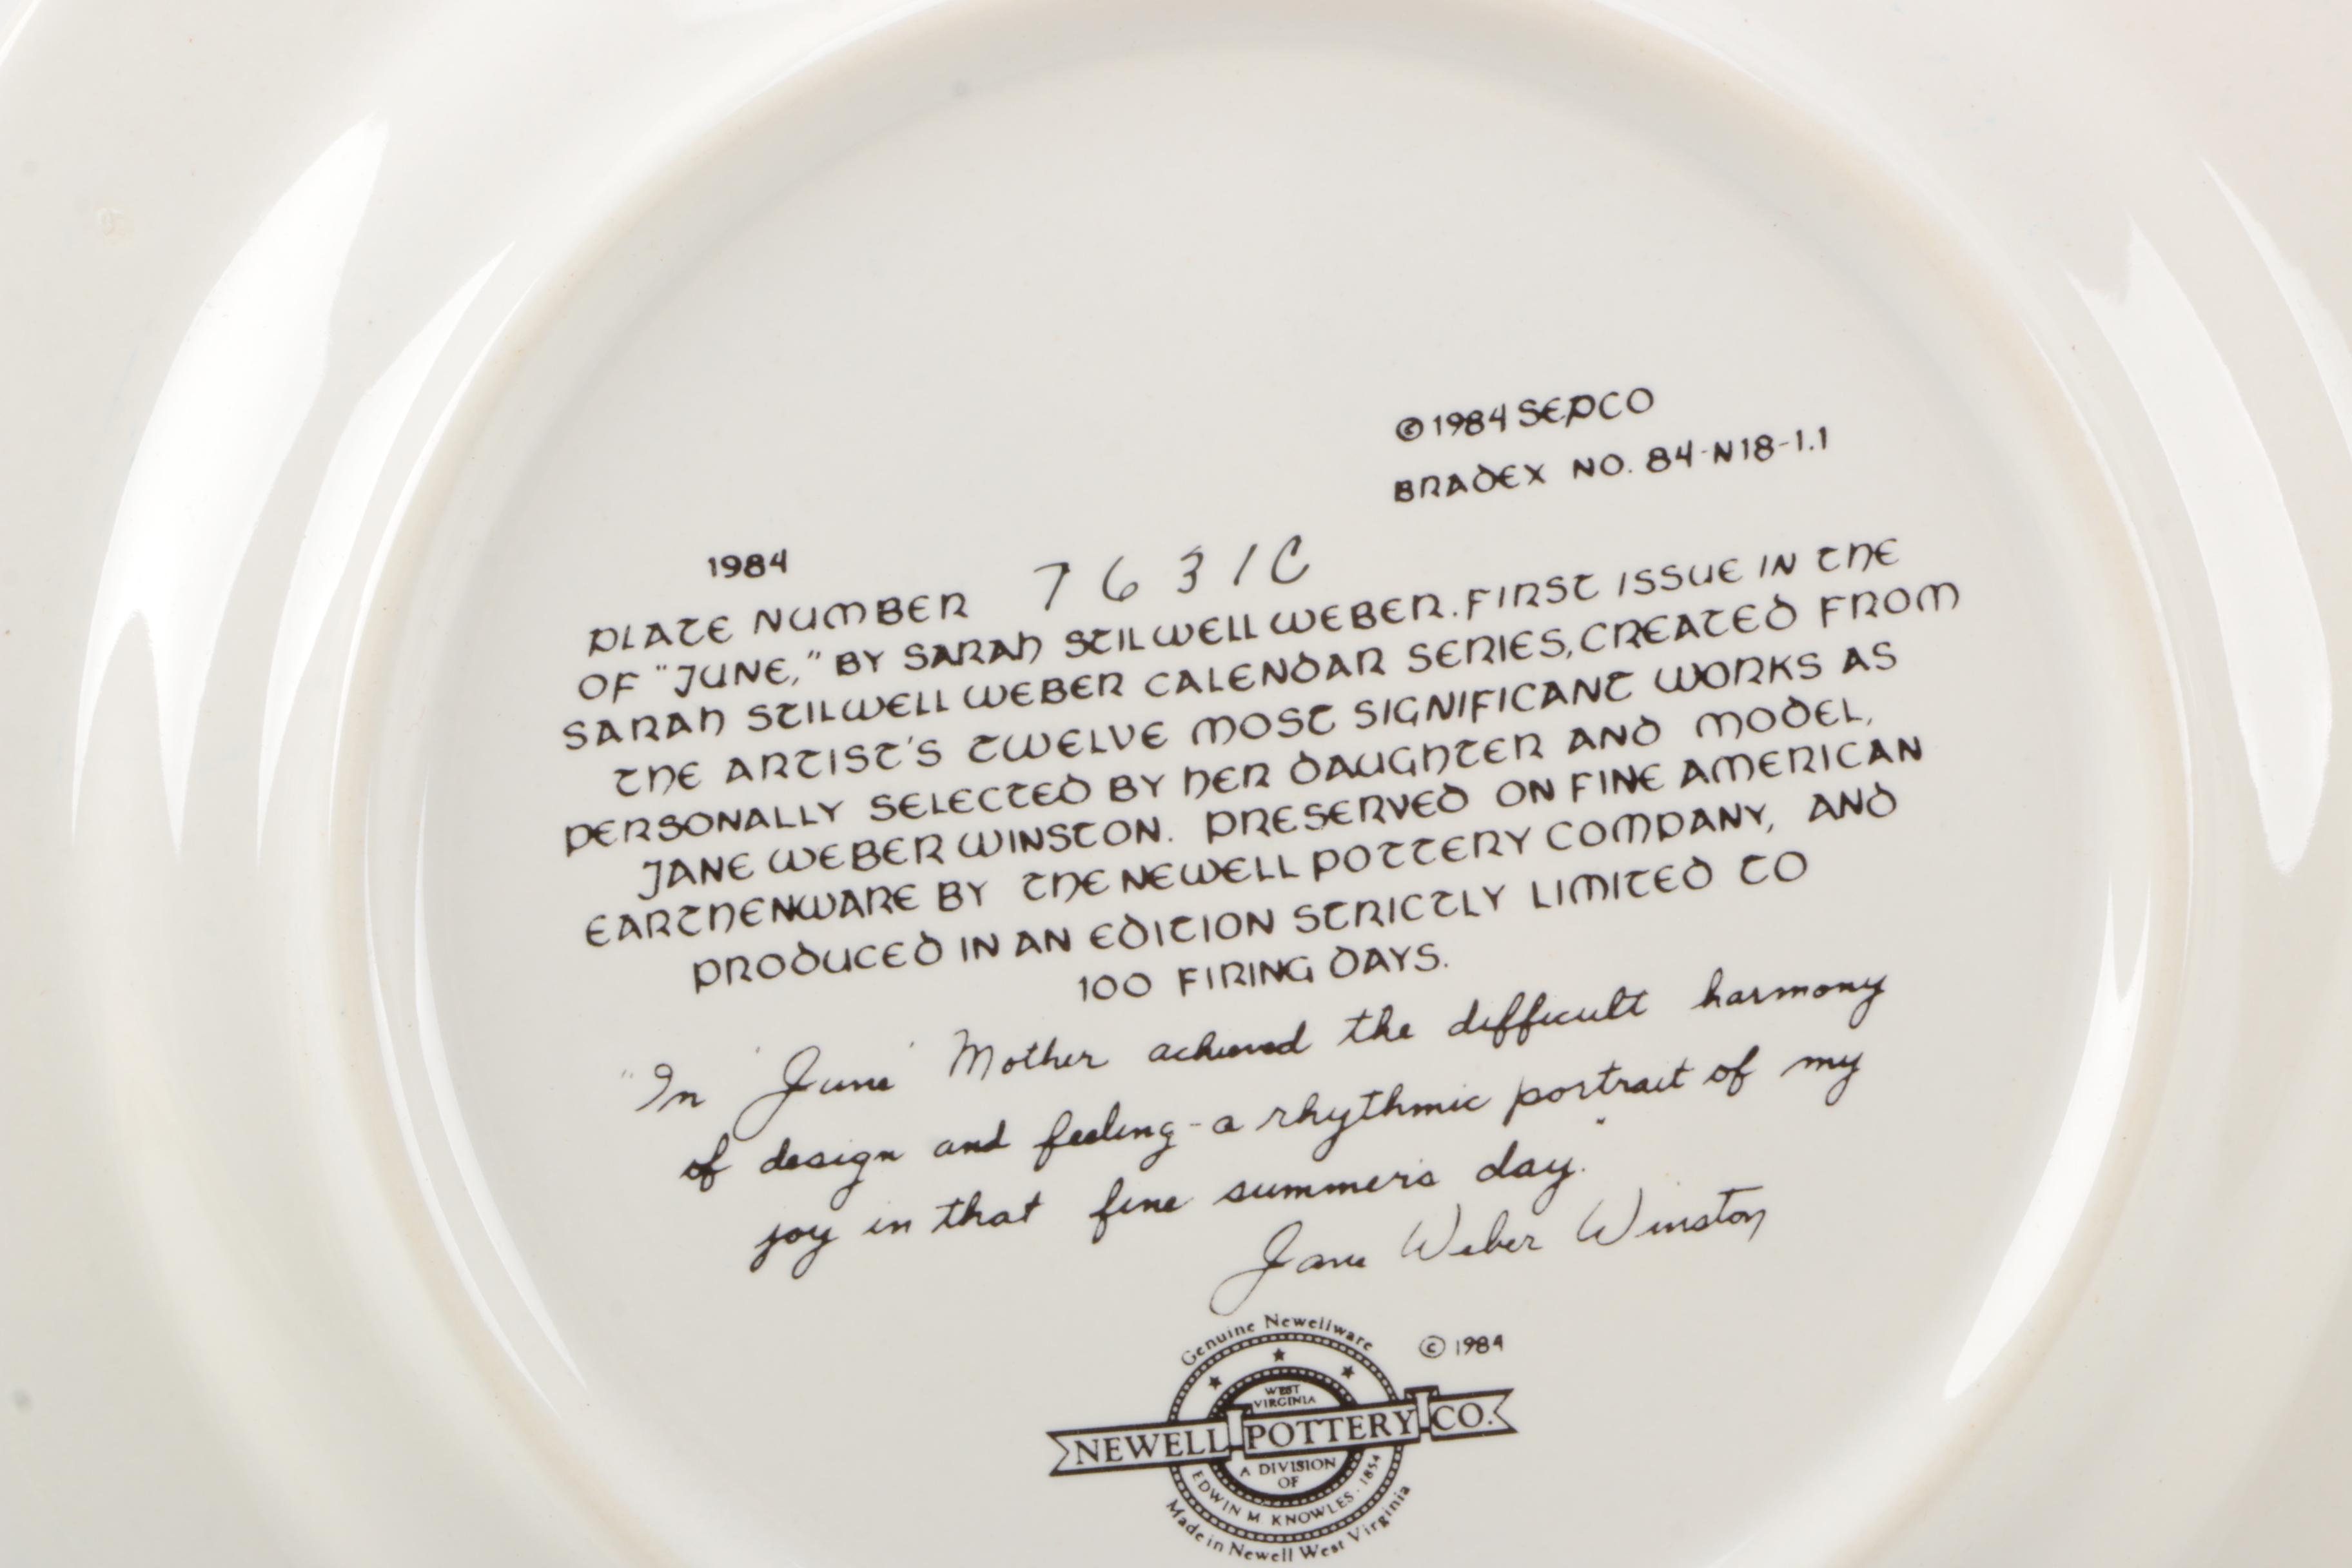 © 1984 SEPCO
BRADEX NO. 84-N18-1.1
1984
PLATE NUMBER 7631C
OF "JUNE," BY SARAH STILWELL WEBER. FIRST ISSUE IN THE
SARAH STILWELL WEBER CALENDAR SERIES, CREATED FROM
THE ARTIST'S TWELVE MOST SIGNIFICANT WORKS AS
PERSONALLY SELECTED BY HER DAUGHTER AND MODEL,
JANE WEBER WINSTON. PRESERVED ON FINE AMERICAN
EARTHENWARE BY THE NEWELL POTTERY COMPANY, AND
PRODUCED IN AN EDITION STRICTLY LIMITED TO
100 FIRING DAYS.
"In 'June' Mother achieved the difficult harmony
of design and feeling - a rhythmic portrait of my
joy in that fine summer's day."
Jane Weber Winston
Genuine Newellware
© 1984
WEST
VIRGINIA
NEWELL POTTERY CO.
A DIVISION
OF
EDWIN M KNOWLES · 1854
Made in Newell West Virginia